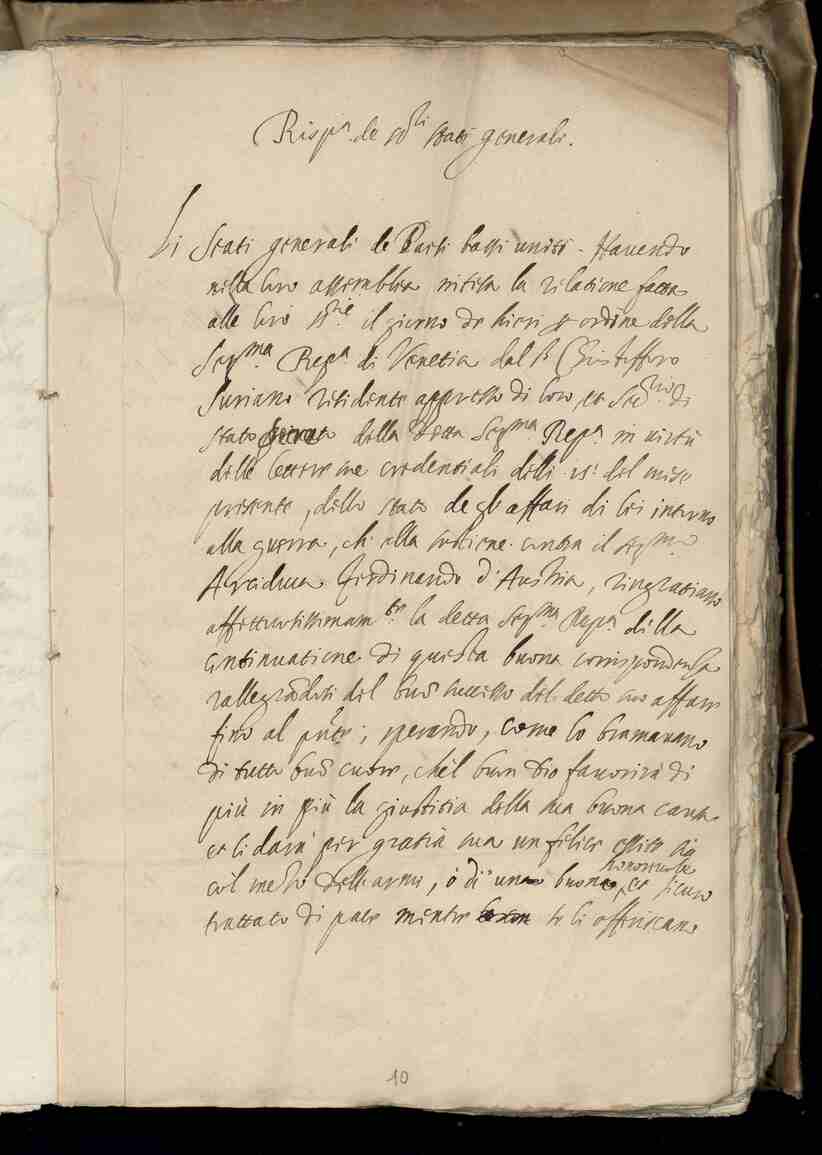 Risp.a de ss.ri stati generali.
Li Stati generali de Paesi bassi uniti. Havendo
nella loro assemblea intesa la relatione fatta
alle loro ss.rie il giorno de hieri p ordine della
Ser.ma Rep.a di Venetia dal S.r Christofforo
Suriano residente appresso di loro, et Seg.rio di
stato della detta Ser.ma Rep.a in virtù
delle lettere sue credentiali delli 15 del mese
presente, dello stato degli affari di lei intorno
alla guerra, ch'alla sostiene contra il Ser.mo
Arciduca Ferdinando d'Austria, ringratiano
affettuosissimam.te la detta Ser.ma Rep.a della
continuatione di questa buona corrispondenza
rallegrādosi del buō successo del detto suo affare
fino al pn̄te; sperando, come lo bramavano
di tutto buō cuore, ch'el buon Dio favorirà di
più in più la giustitia della sua buona causa
et li darà per gratia sua un felice essito sia
co'l mezo dell'armi, ò di uno buono, honorevole et sicuro
trattato di pace mentre se li offeriscano
10